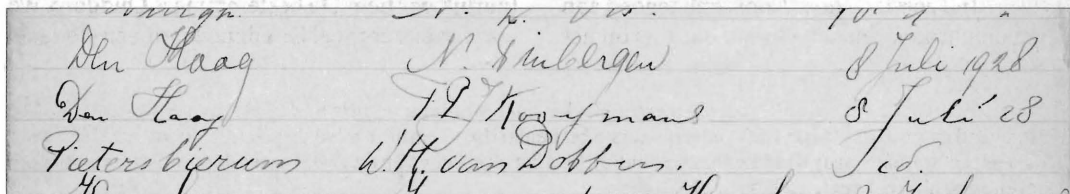 Den Haag N. Tinbergen 8 Juli 1928
Den Haag Kooymans 8 Juli 28
Pietersbierum W.H. van Dobben. id.